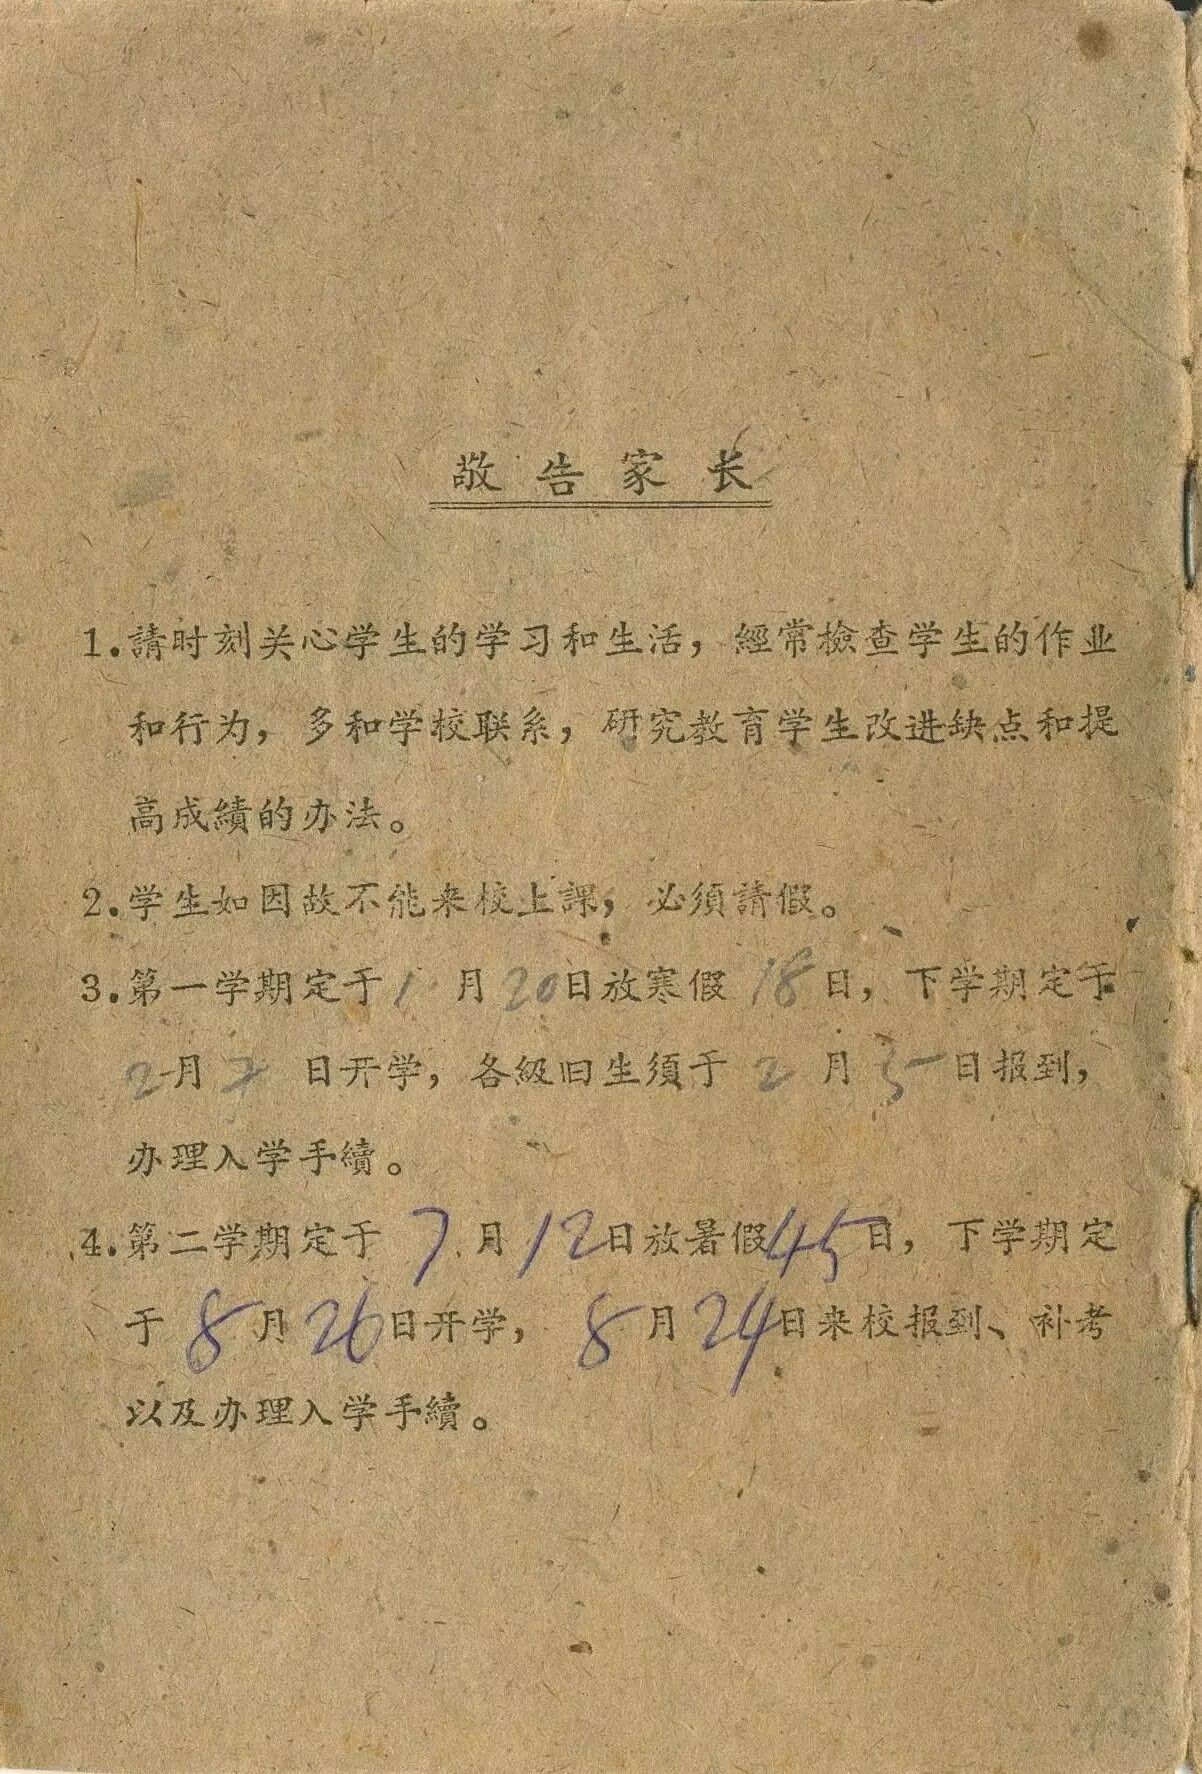 敬告家长
1.請时刻关心学生的学习和生活，經常檢查学生的作业
和行为，多和学校联系，研究教育学生改进缺点和提
高成績的办法。
2.学生如因故不能来校上課，必須請假。
3.第一学期定于1月20日放寒假18日，下学期定于
2月7日开学，各級旧生須于2月5日报到，
办理入学手續。
4.第二学期定于7月12日放暑假45日，下学期定
于8月26日开学，8月24日来校报到、补考
以及办理入学手續。